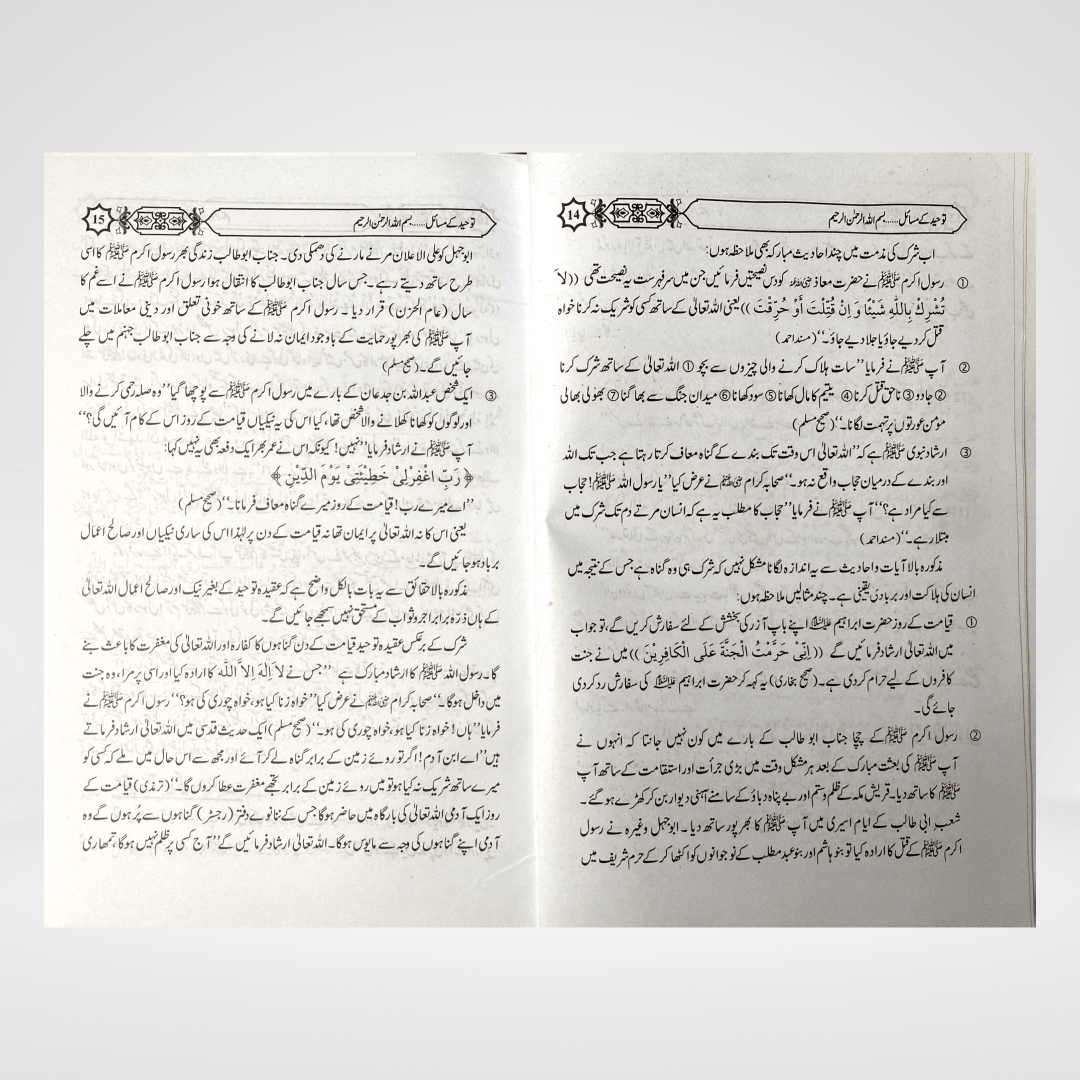 توحید کے مسائل......بسم اللہ الرحمٰن الرحیم
14
اب شرک کی مذمت میں چند احادیث مبارکہ بھی ملاحظہ ہوں:
① رسول اکرم ﷺ نے حضرت معاذ رضی اللہ عنہ کو دس نصیحتیں فرمائیں جن میں سرفہرست یہ نصیحت تھی ((لاَ
تُشْرِكْ بِاللّٰهِ شَيْئًا وَ اِنْ قُتِّلْتَ أَوْ حُرِّقْتَ)) یعنی اللہ تعالیٰ کے ساتھ کسی کو شریک نہ کرنا خواہ
قتل کر دیے جاؤ یا جلا دیے جاؤ۔‘‘ (مسند احمد)
② آپ ﷺ نے فرمایا ’’سات ہلاک کرنے والی چیزوں سے بچو ① اللہ تعالیٰ کے ساتھ شرک کرنا
② جادو ③ ناحق قتل کرنا ④ یتیم کا مال کھانا ⑤ سود کھانا ⑥ میدان جنگ سے بھاگنا ⑦ بھولی بھالی
مومن عورتوں پر تہمت لگانا۔‘‘ (صحیح مسلم)
③ ارشاد نبوی ﷺ ہے کہ ’’اللہ تعالیٰ اس وقت تک بندے کے گناہ معاف کرتا رہتا ہے جب تک اللہ
اور بندے کے درمیان حجاب واقع نہ ہو۔‘‘ صحابہ کرام رضی اللہ عنہم نے عرض کیا ’’یا رسول اللہ ﷺ! حجاب
سے کیا مراد ہے؟‘‘ آپ ﷺ نے فرمایا ’’حجاب کا مطلب یہ ہے کہ انسان مرتے دم تک شرک میں
مبتلا رہے۔‘‘ (مسند احمد)
مذکورہ بالا آیات و احادیث سے یہ اندازہ لگانا مشکل نہیں کہ شرک ہی وہ گناہ ہے جس کے نتیجہ میں
انسان کی ہلاکت اور بربادی یقینی ہے۔ چند مثالیں ملاحظہ ہوں:
① قیامت کے روز حضرت ابراہیم علیہ السلام اپنے باپ آزر کی بخشش کے لئے سفارش کریں گے، تو جواب
میں اللہ تعالیٰ ارشاد فرمائیں گے ((اِنِّىْ حَرَّمْتُ الْجَنَّةَ عَلَى الْكَافِرِيْنَ)) میں نے جنت
کافروں کے لیے حرام کر دی ہے۔ (صحیح بخاری) یہ کہہ کر حضرت ابراہیم علیہ السلام کی سفارش رد کر دی
جائے گی۔
② رسول اکرم ﷺ کے چچا جناب ابو طالب کے بارے میں کون نہیں جانتا کہ انہوں نے
آپ ﷺ کی بعثت مبارک کے بعد ہر مشکل وقت میں بڑی جرأت اور استقامت کے ساتھ آپ
ﷺ کا ساتھ دیا۔ قریش مکہ کے ظلم و ستم اور بے پناہ دباؤ کے سامنے آہنی دیوار بن کر کھڑے ہو گئے۔
شعب ابی طالب کے ایام اسیری میں آپ ﷺ کا بھرپور ساتھ دیا۔ ابوجہل وغیرہ نے رسول
اکرم ﷺ کے قتل کا ارادہ کیا تو بنو ہاشم اور بنو عبدمطلب کے نوجوانوں کو اکٹھا کر کے حرم شریف میں
توحید کے مسائل......بسم اللہ الرحمٰن الرحیم
15
ابوجہل کو علی الاعلان مرنے مارنے کی دھمکی دی۔ جناب ابوطالب زندگی بھر رسول اکرم ﷺ کا اسی
طرح ساتھ دیتے رہے۔ جس سال جناب ابوطالب کا انتقال ہوا رسول اکرم ﷺ نے اسے غم کا
سال (عام الحزن) قرار دیا۔ رسول اکرم ﷺ کے ساتھ خونی تعلق اور دینی معاملات میں
آپ ﷺ کی بھرپور حمایت کے باوجود ایمان نہ لانے کی وجہ سے جناب ابوطالب جہنم میں چلے
جائیں گے۔ (صحیح مسلم)
③ ایک شخص عبداللہ بن جدعان کے بارے میں رسول اکرم ﷺ سے پوچھا گیا ’’وہ صلہ رحمی کرنے والا
اور لوگوں کو کھانا کھلانے والا شخص تھا، کیا اس کی یہ نیکیاں قیامت کے روز اس کے کام آئیں گی؟‘‘
آپ ﷺ نے ارشاد فرمایا ’’نہیں! کیونکہ اس نے عمر بھر ایک دفعہ بھی یہ نہیں کہا:
﴿رَبِّ اغْفِرْلِىْ خَطِيْئَتِىْ يَوْمَ الدِّيْنِ﴾
’’اے میرے رب! قیامت کے روز میرے گناہ معاف فرمانا۔‘‘ (صحیح مسلم)
یعنی اس کا نہ اللہ تعالیٰ پر ایمان تھا نہ قیامت کے دن پر لہٰذا اس کی ساری نیکیاں اور صالح اعمال
برباد ہو جائیں گے۔
مذکورہ بالا حقائق سے یہ بات بالکل واضح ہے کہ عقیدہ توحید کے بغیر نیک اور صالح اعمال اللہ تعالیٰ
کے ہاں ذرہ برابر اجر و ثواب کے مستحق نہیں سمجھے جائیں گے۔
شرک کے برعکس عقیدہ توحید قیامت کے دن گناہوں کا کفارہ اور اللہ تعالیٰ کی مغفرت کا باعث بنے
گا۔ رسول اللہ ﷺ کا ارشاد مبارک ہے ’’جس نے لاَ اِلٰهَ اِلاَّ اللّٰه کا ارادہ کیا اور اسی پر مرا، وہ جنت
میں داخل ہوگا۔‘‘ صحابہ کرام رضی اللہ عنہم نے عرض کیا ’’خواہ زنا کیا ہو، خواہ چوری کی ہو؟‘‘ رسول اکرم ﷺ نے
فرمایا ’’ہاں! خواہ زنا کیا ہو، خواہ چوری کی ہو۔‘‘ (صحیح مسلم) ایک حدیث قدسی میں اللہ تعالیٰ ارشاد فرماتے
ہیں ’’اے ابن آدم! اگر تو روئے زمین کے برابر گناہ لے کر آئے اور مجھ سے اس حال میں ملے کہ کسی کو
میرے ساتھ شریک نہ کیا ہو تو میں روئے زمین کے برابر تجھے مغفرت عطا کروں گا۔‘‘ (ترمذی) قیامت کے
روز ایک آدمی اللہ تعالیٰ کی بارگاہ میں حاضر ہوگا جس کے ننانوے دفتر (رجسٹر) گناہوں سے پُر ہوں گے وہ
آدمی اپنے گناہوں کی وجہ سے مایوس ہوگا۔ اللہ تعالیٰ ارشاد فرمائیں گے ’’آج کسی پر ظلم نہیں ہوگا، تمہاری